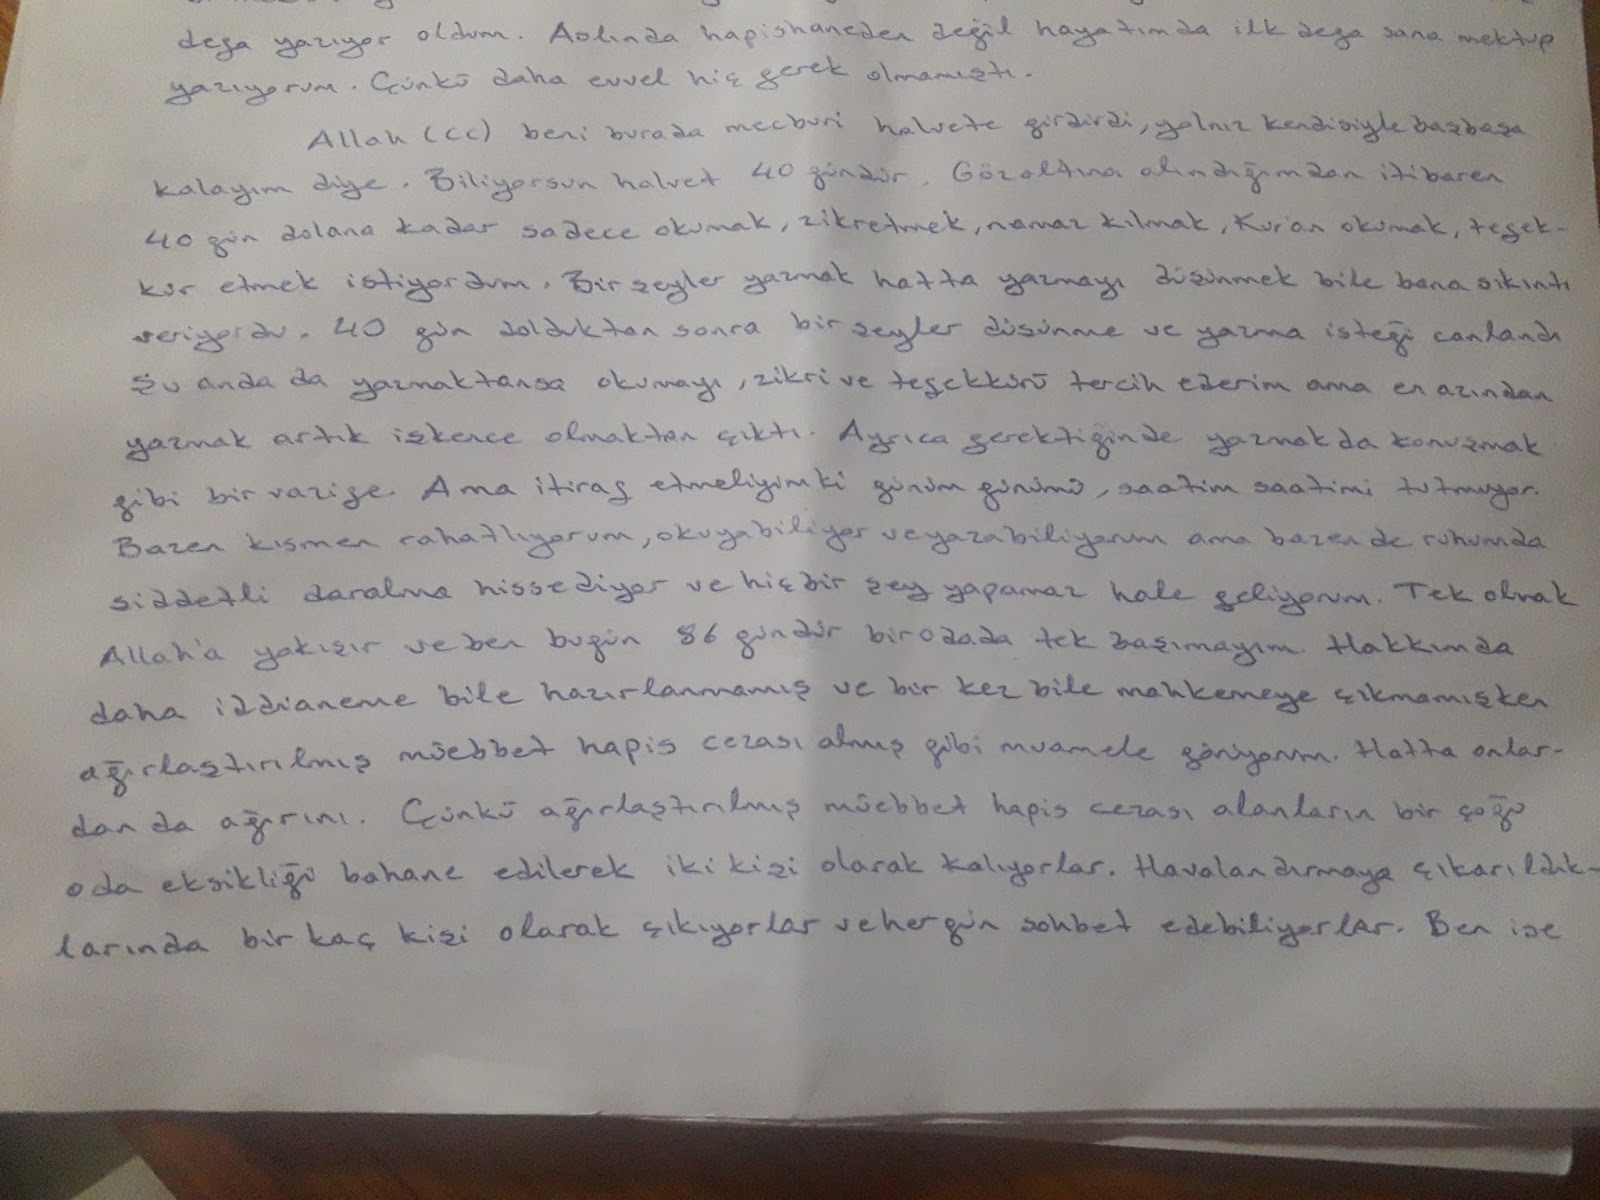 defa yazıyor oldum. Aslında hapishaneden değil hayatımda ilk defa sana mektup
yazıyorum. Çünkü daha evvel hiç gerek olmamıştı.
Allah (CC) beni burada mecburi halvete girdirdi, yalnız kendisiyle başbaşa
kalayım diye. Biliyorsun halvet 40 gündür. Gözaltına alındığımdan itibaren
40 gün dolana kadar sadece okumak, zikretmek, namaz kılmak, Kur'an okumak, tefek-
kür etmek istiyordum. Bir şeyler yazmak hatta yazmayı düşünmek bile bana sıkıntı
veriyordu. 40 gün dolduktan sonra bir şeyler düşünme ve yazma isteği canlandı
Şu anda da yazmaktansa okumayı, zikri ve tefekkürü tercih ederim ama en azından
yazmak artık işkence olmaktan çıktı. Ayrıca gerektiğinde yazmak da konuşmak
gibi bir vazife. Ama itiraf etmeliyim ki günüm günümü, saatim saatimi tutmuyor.
Bazen kısmen rahatlıyorum, okuyabiliyor ve yazabiliyorum ama bazen de ruhumda
şiddetli daralma hissediyor ve hiçbir şey yapamaz hale geliyorum. Tek olmak
Allah'a yakışır ve ben bugün 86 gündür bir odada tek başımayım. Hakkımda
daha iddianeme bile hazırlanmamış ve bir kez bile mahkemeye çıkmamışken
ağırlaştırılmış müebbet hapis cezası almış gibi muamele görüyorum. Hatta onlar-
dan da ağırını. Çünkü ağırlaştırılmış müebbet hapis cezası alanların bir çoğu
oda eksikliği bahane edilerek iki kişi olarak kalıyorlar. Havalandırmaya çıkarıldık-
larında bir kaç kişi olarak çıkıyorlar ve hergün sohbet edebiliyorlar. Ben ise